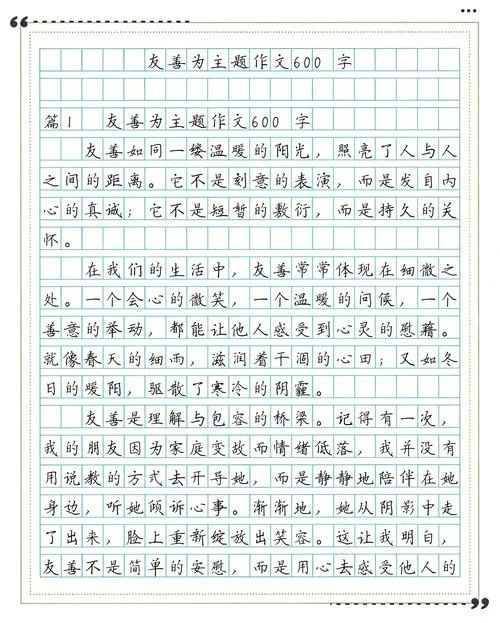 友善为主题作文600字
篇1 友善为主题作文600字
友善如同一缕温暖的阳光，照亮了人与人
之间的距离。它不是刻意的表演，而是发自内
心的真诚；它不是短暂的敷衍，而是持久的关
怀。
在我们的生活中，友善常常体现在细微之
处。一个会心的微笑，一个温暖的问候，一个
善意的举动，都能让他人感受到心灵的慰藉。
就像春天的细雨，滋润着干涸的心田；又如冬
日的暖阳，驱散了寒冷的阴霾。
友善是理解与包容的桥梁。记得有一次，
我的朋友因为家庭变故而情绪低落，我并没有
用说教的方式去开导她，而是静静地陪伴在她
身边，听她倾诉心事。渐渐地，她从阴影中走
了出来，脸上重新绽放出笑容。这让我明白，
友善不是简单的安慰，而是用心去感受他人的